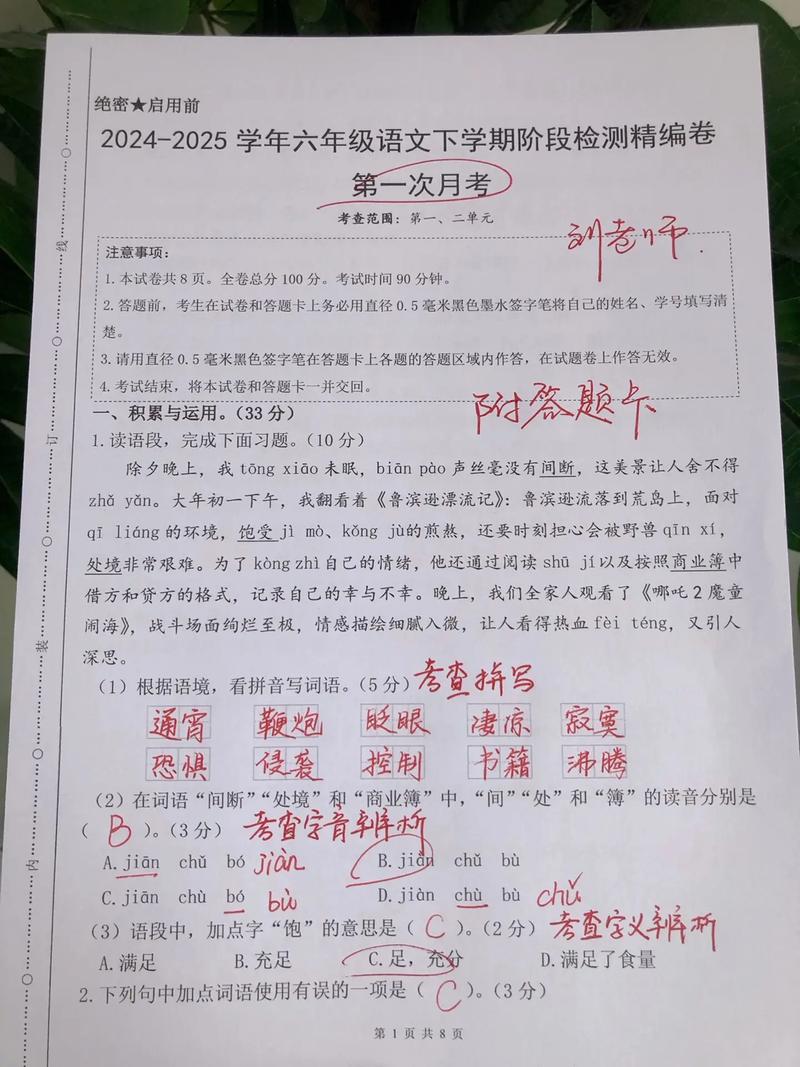 绝密★启用前
2024-2025 学年六年级语文下学期阶段检测精编卷
第一次月考
考查范围：第一、二单元
刘老师.
注意事项：
1.本试卷共 8 页。全卷总分 100 分。考试时间 90 分钟。
2.答题前，考生在试卷和答题卡上务必用直径 0.5 毫米黑色墨水签字笔将自己的姓名、学号填写清
楚。
3.请用直径 0.5 毫米黑色签字笔在答题卡上各题的答题区域内作答，在试题卷上作答无效。
4.考试结束，将本试卷和答题卡一并交回。
附答题卡
一、积累与运用。（33 分）
1.读语段，完成下面习题。（10 分）
除夕晚上，我 tōng xiāo 未眠，biān pào 声丝毫没有间断，这美景让人舍不得
zhǎ yǎn。大年初一下午，我翻看着《鲁滨逊漂流记》：鲁滨逊流落到荒岛上，面对
qī liáng 的环境，饱受 jì mò、kǒng jù的煎熬，还要时刻担心会被野兽 qīn xí，
处境非常艰难。为了 kòng zhì 自己的情绪，他还通过阅读 shū jí 以及按照商业簿中
借方和贷方的格式，记录自己的幸与不幸。晚上，我们全家人观看了《哪吒 2 魔童
闹海》，战斗场面绚烂至极，情感描绘细腻入微，让人看得热血 fèi téng，又引人
深思。
（1）根据语境，看拼音写词语。（5 分）考查拼写
通宵 鞭炮 眨眼 凄凉 寂寞
恐惧 侵袭 控制 书籍 沸腾
（2）在词语“间断”“处境”和“商业簿”中，“间”“处”和“簿”的读音分别是
（ B ）。（3 分）考查字音辨析
A.jiān chǔ bó jiàn B.jiàn chǔ bù
C.jiān chù bó bù D.jiàn chù bù chǔ
（3）语段中，加点字“饱”的意思是（ C ）。（2 分）考查字义辨析
A.满足 B.充足 C.足，充分 D.满足了食量
2.下列句中加点词语使用有误的一项是（ C ）。（3 分）
第 1 页 共 8 页
线
订
装
内